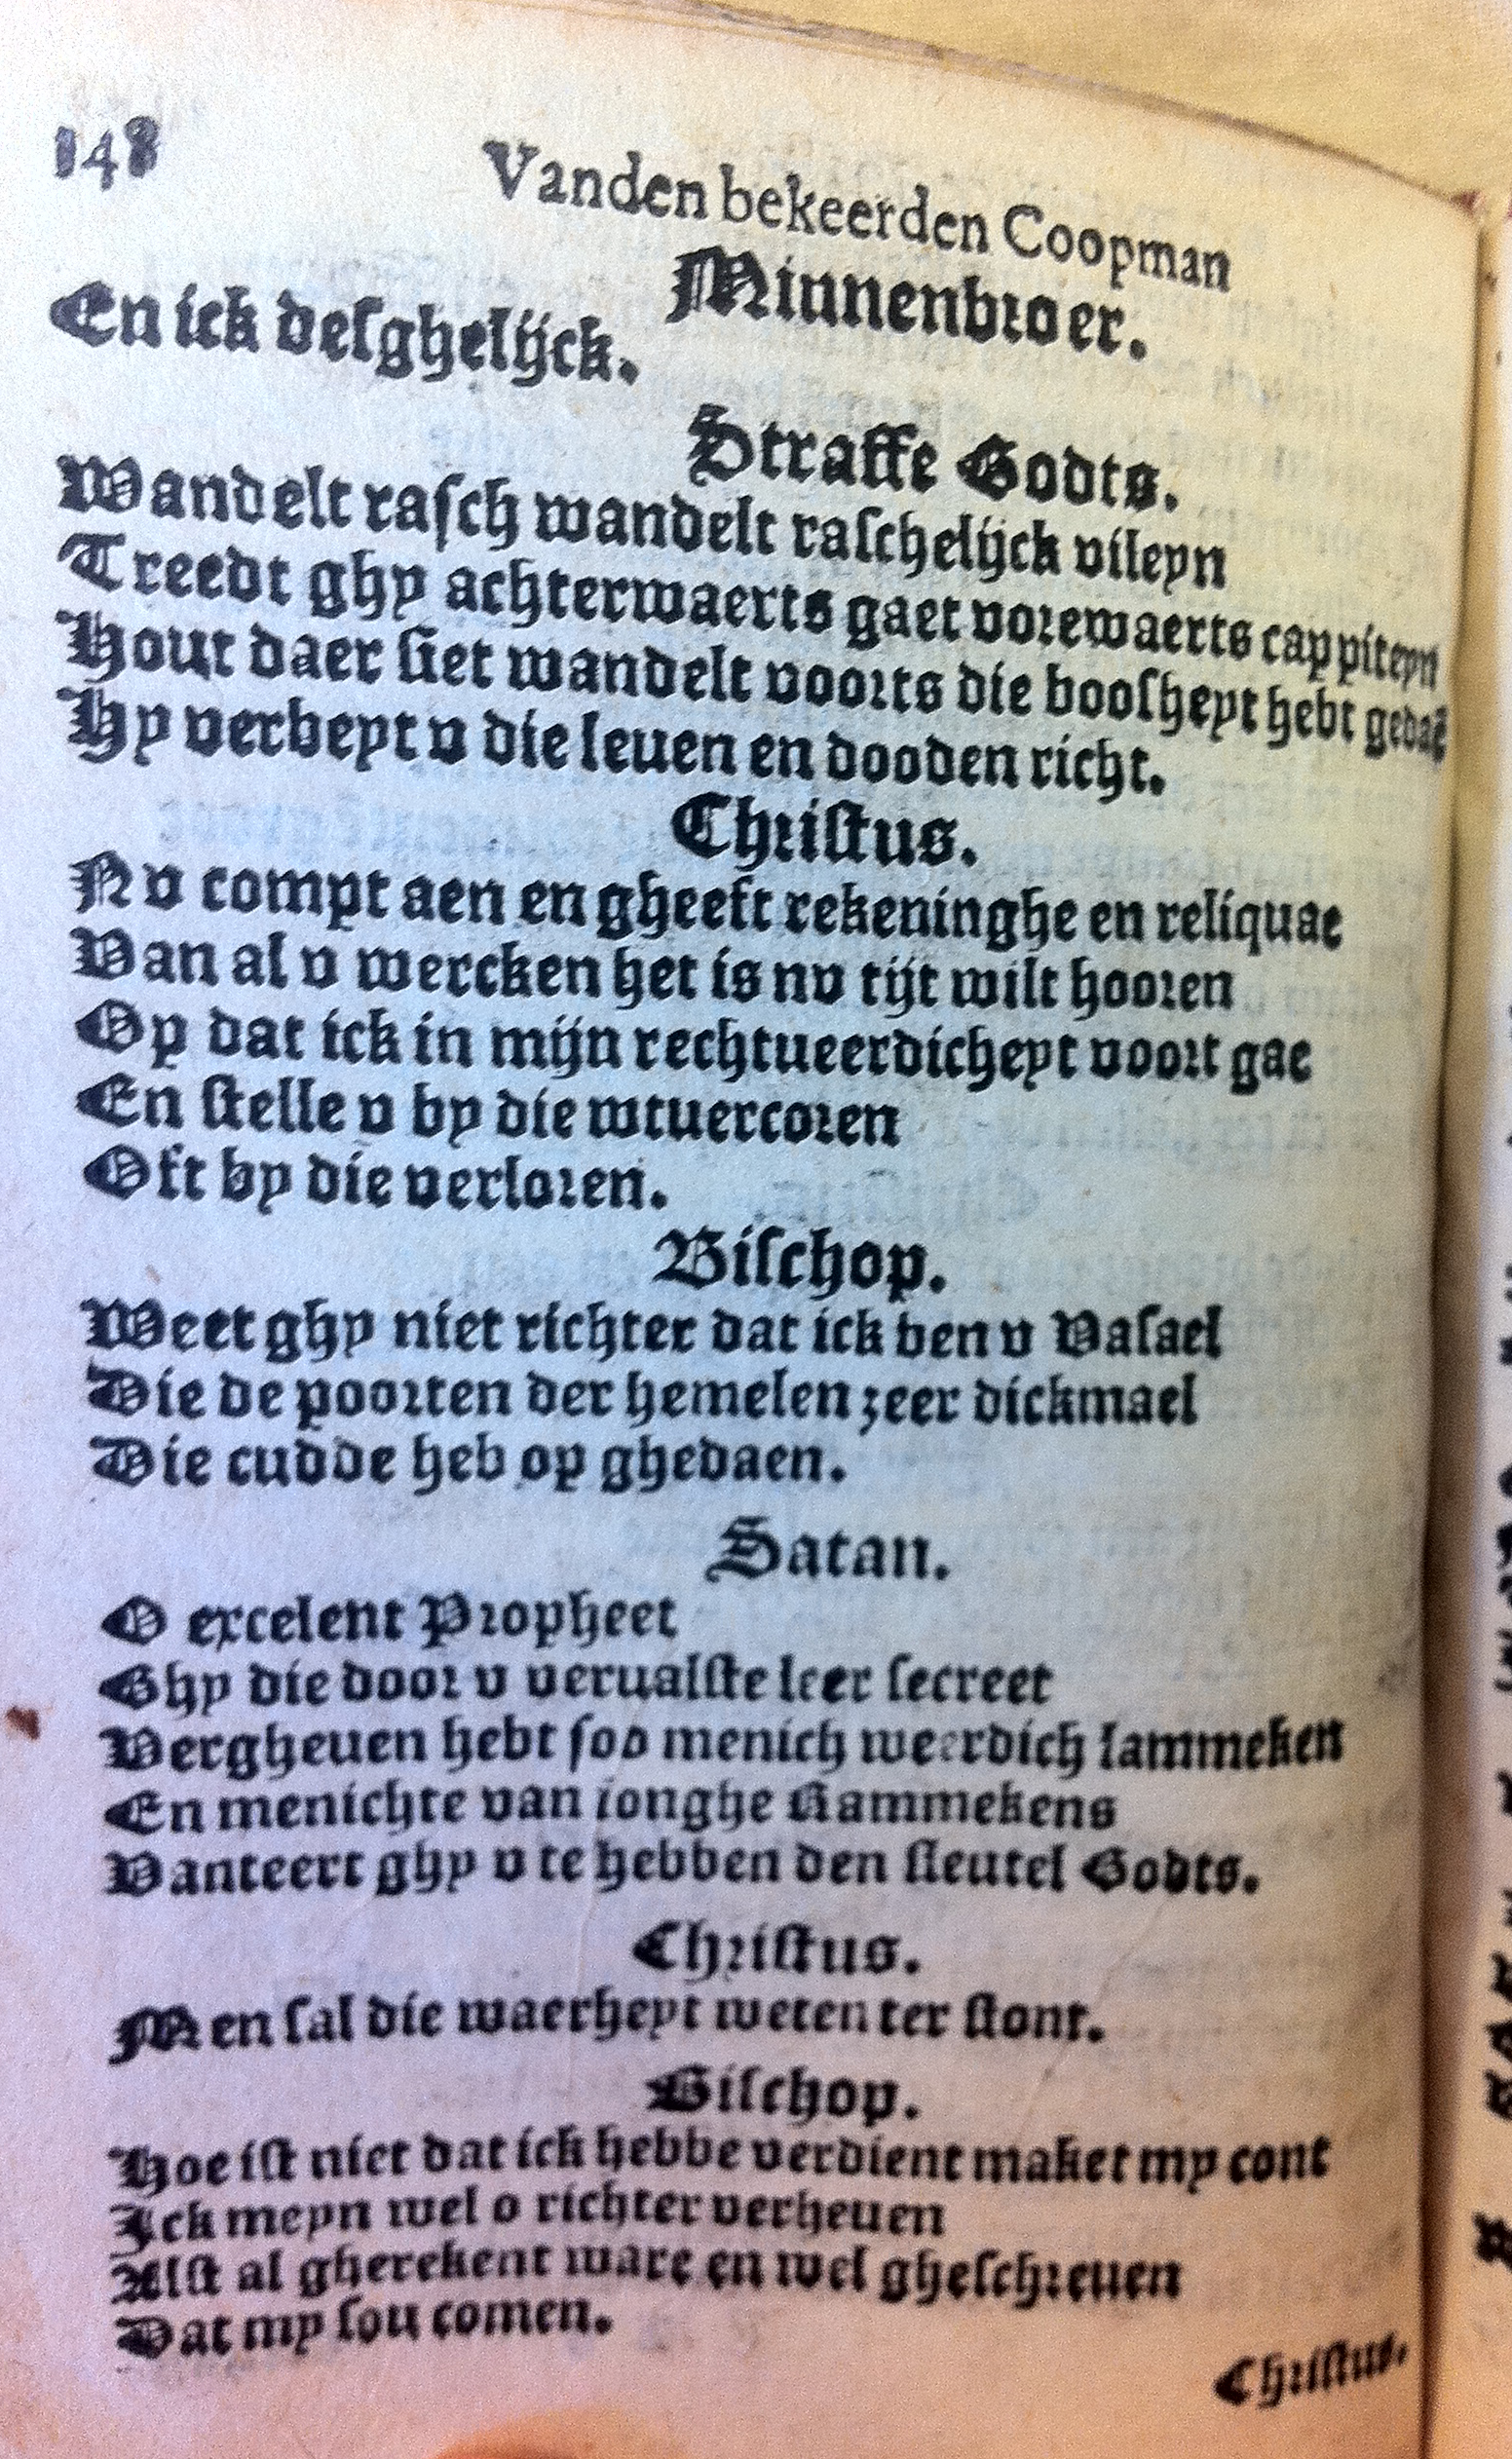 148
Vanden bekeerden Coopman
Minnenbroer.
En ick desghelijck.
Straffe Godts.
Wandelt rasch wandelt raschelijck vileyn
Treedt ghy achterwaerts gaet vorewaerts cappiteyn
Hout daer siet wandelt voorts die boosheyt hebt gedaẽ
Hy verbeyt v die leuen en dooden richt.
Christus.
Nv compt aen en gheeft rekeninghe en reliquae
Van al v wercken het is nv tijt wilt hooren
Op dat ick in mijn rechtueerdicheyt voort gae
En stelle v by die wtuercoren
Oft by die verloren.
Bisschop.
Weet ghy niet richter dat ick ben v Vasael
Die de poorten der hemelen zeer dickmael
Die cudde heb op ghedaen.
Satan.
O excelent Propheet
Ghy die door v verualste leer secreet
Vergheuen hebt soo menich weerdich lammeken
En menichte van ionghe Rammekens
Vanteert ghy v te hebben den sleutel Godts.
Christus.
Men sal die waerheyt weten ter stont.
Bisschop.
Hoe ist niet dat ick hebbe verdient maket my cont
Ick meyn wel o richter verheuen
Alst al gherekent ware en wel gheschreuen
Dat my sou comen.
Christus.